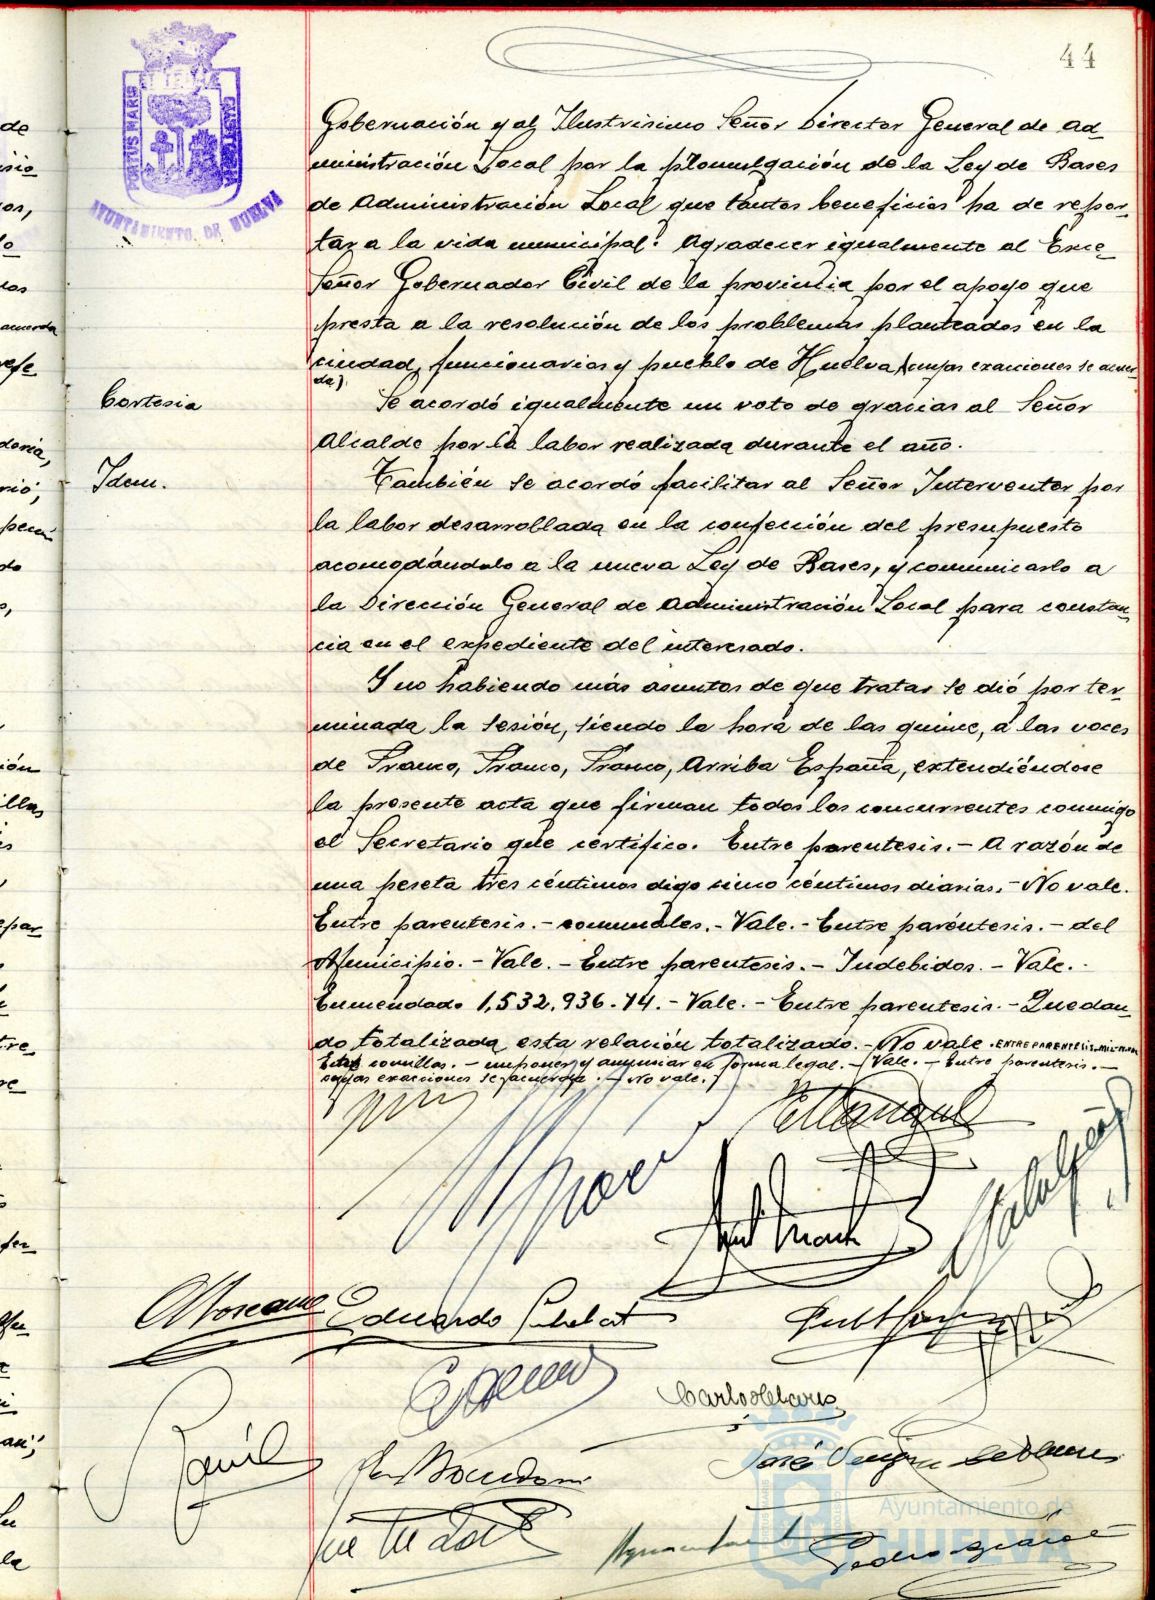 44
PORTUS MARIS
CUSTODIA
AYUNTAMIENTO DE HUELVA
Gobernación y al Ilustrisimo Señor Director General de Ad-
ministración Local por la promulgación de la Ley de Bases
de Administración Local que tantos beneficios ha de repor-
tar a la vida municipal. Agradecer igualmente al Exc.
Señor Gobernador Civil de la provincia por el apoyo que
presta a la resolución de los problemas planteados en la
ciudad, funcionarios y pueblo de Huelva (cuyas exacciones se acuer-
da).
Cortesia
Se acordó igualmente un voto de gracias al Señor
Alcalde por la labor realizada durante el año.
Idem.
También se acordó facilitar al Señor Interventor por
la labor desarrollada en la confección del presupuesto
acomodándolo a la nueva Ley de Bases, y comunicarlo a
la Dirección General de Administración Local para constan-
cia en el expediente del interesado.
Y no habiendo más asuntos de que tratar se dió por ter-
minada la sesión, siendo la hora de las quince, a las voces
de Franco, Franco, Franco, Arriba España, extendiéndose
la presente acta que firman todos los concurrentes conmigo
el Secretario que certifico. Entre parentesis.- A razón de
una peseta tres céntimos digo cinco céntimos diarias.- No vale.
Entre parentesis.- comunales.- Vale.- Entre paréntesis.- del
Municipio.- Vale.- Entre parentesis.- Indebidos.- Vale.-
Enmendado 1,532,936.74.- Vale.- Entre parentesis.- Quedan-
do totalizada esta relación totalizado.- No vale. ENTRE PARENTESIS.
comillas.- imponer y anunciar en forma legal.- Vale.- Entre parentesis.-
cuyas exacciones se acuerda.- No vale.
Eduardo
José
Pedro
Ayuntamiento de
HUELVA